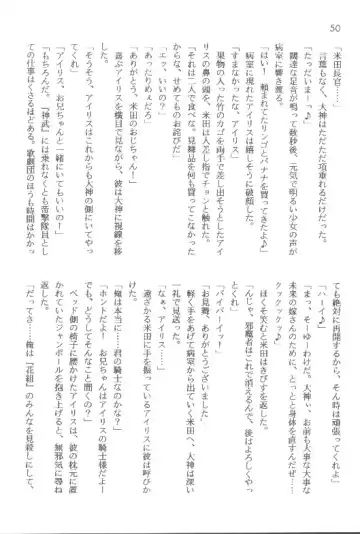 50
「米田長官…」
言葉もなく、大神はただただ項垂れるだけだった。
「たっだいまー！」
闊達な足音が鳴って数秒後、元気で明るい少女の声が
病室に響き渡る。
「はい！　頼まれてたリンゴとバナナを買ってきたよ♪」
病室に現れたアイリスは嬉しそうに破顔した。
「すまなかったな、アイリス」
果物の入った竹のカゴを両手で差し出そうとしたアイ
リスの鼻頭を、米田は人差し指でチョンと触れた。
「それは二人で食べな。見舞品を何も買ってこなかった
からな、せめてものお詫びだ」
「えっ、いいの？」
「あったりめぇだろ」
「ありがとう、米田のおじちゃん！」
喜ぶアイリスを横目で見ながら、彼は大神に視線を移
「そうだ、アイリス。これからも大神の側にいてやっ
「アイリス、お兄ちゃんと一緒にいてもいいの！」
「もちろんだ。『神武』には乗れなくとも帝撃隊員とし
ての仕事はくさるほどある。歌劇団のほうも時間はかかっ
ても絶対に再開するから、それまでは頑張ってくれよ」
「ハーイ♪」
「まっ、そーゆーわけだ。大神ぃ、お前も大事な大事な
未来の嫁さんのために、とっとと身体を直すんだぜ…
クックックッ♪」
ほくそ笑むと米田はきびすを返した。
「んじゃ、邪魔者はこれで消えるんで、後はよろしくやっ
とくれ」
「バイバーイッ！」
「お見舞、ありがとうございました」
軽く手をあげて病室から出ていく米田へ、大神は深い
一礼で見送った。
「なぁ、アイリス…」
遠ざかる米田に手を振っているアイリスに彼は呼びか
けた。
「俺は本当に……君の騎士なのかな？」
「ホントだよ！　お兄ちゃんはアイリスの騎士様だよ！
でも、どうしてそんなこと聞くの？」
ベッド側の椅子に腰かけたアイリスは、彼の枕元に置
かれていたジャンポールを抱き上げると、無邪気に尋ね
「だってさ……俺は『花組』のみんなを見殺しにして、